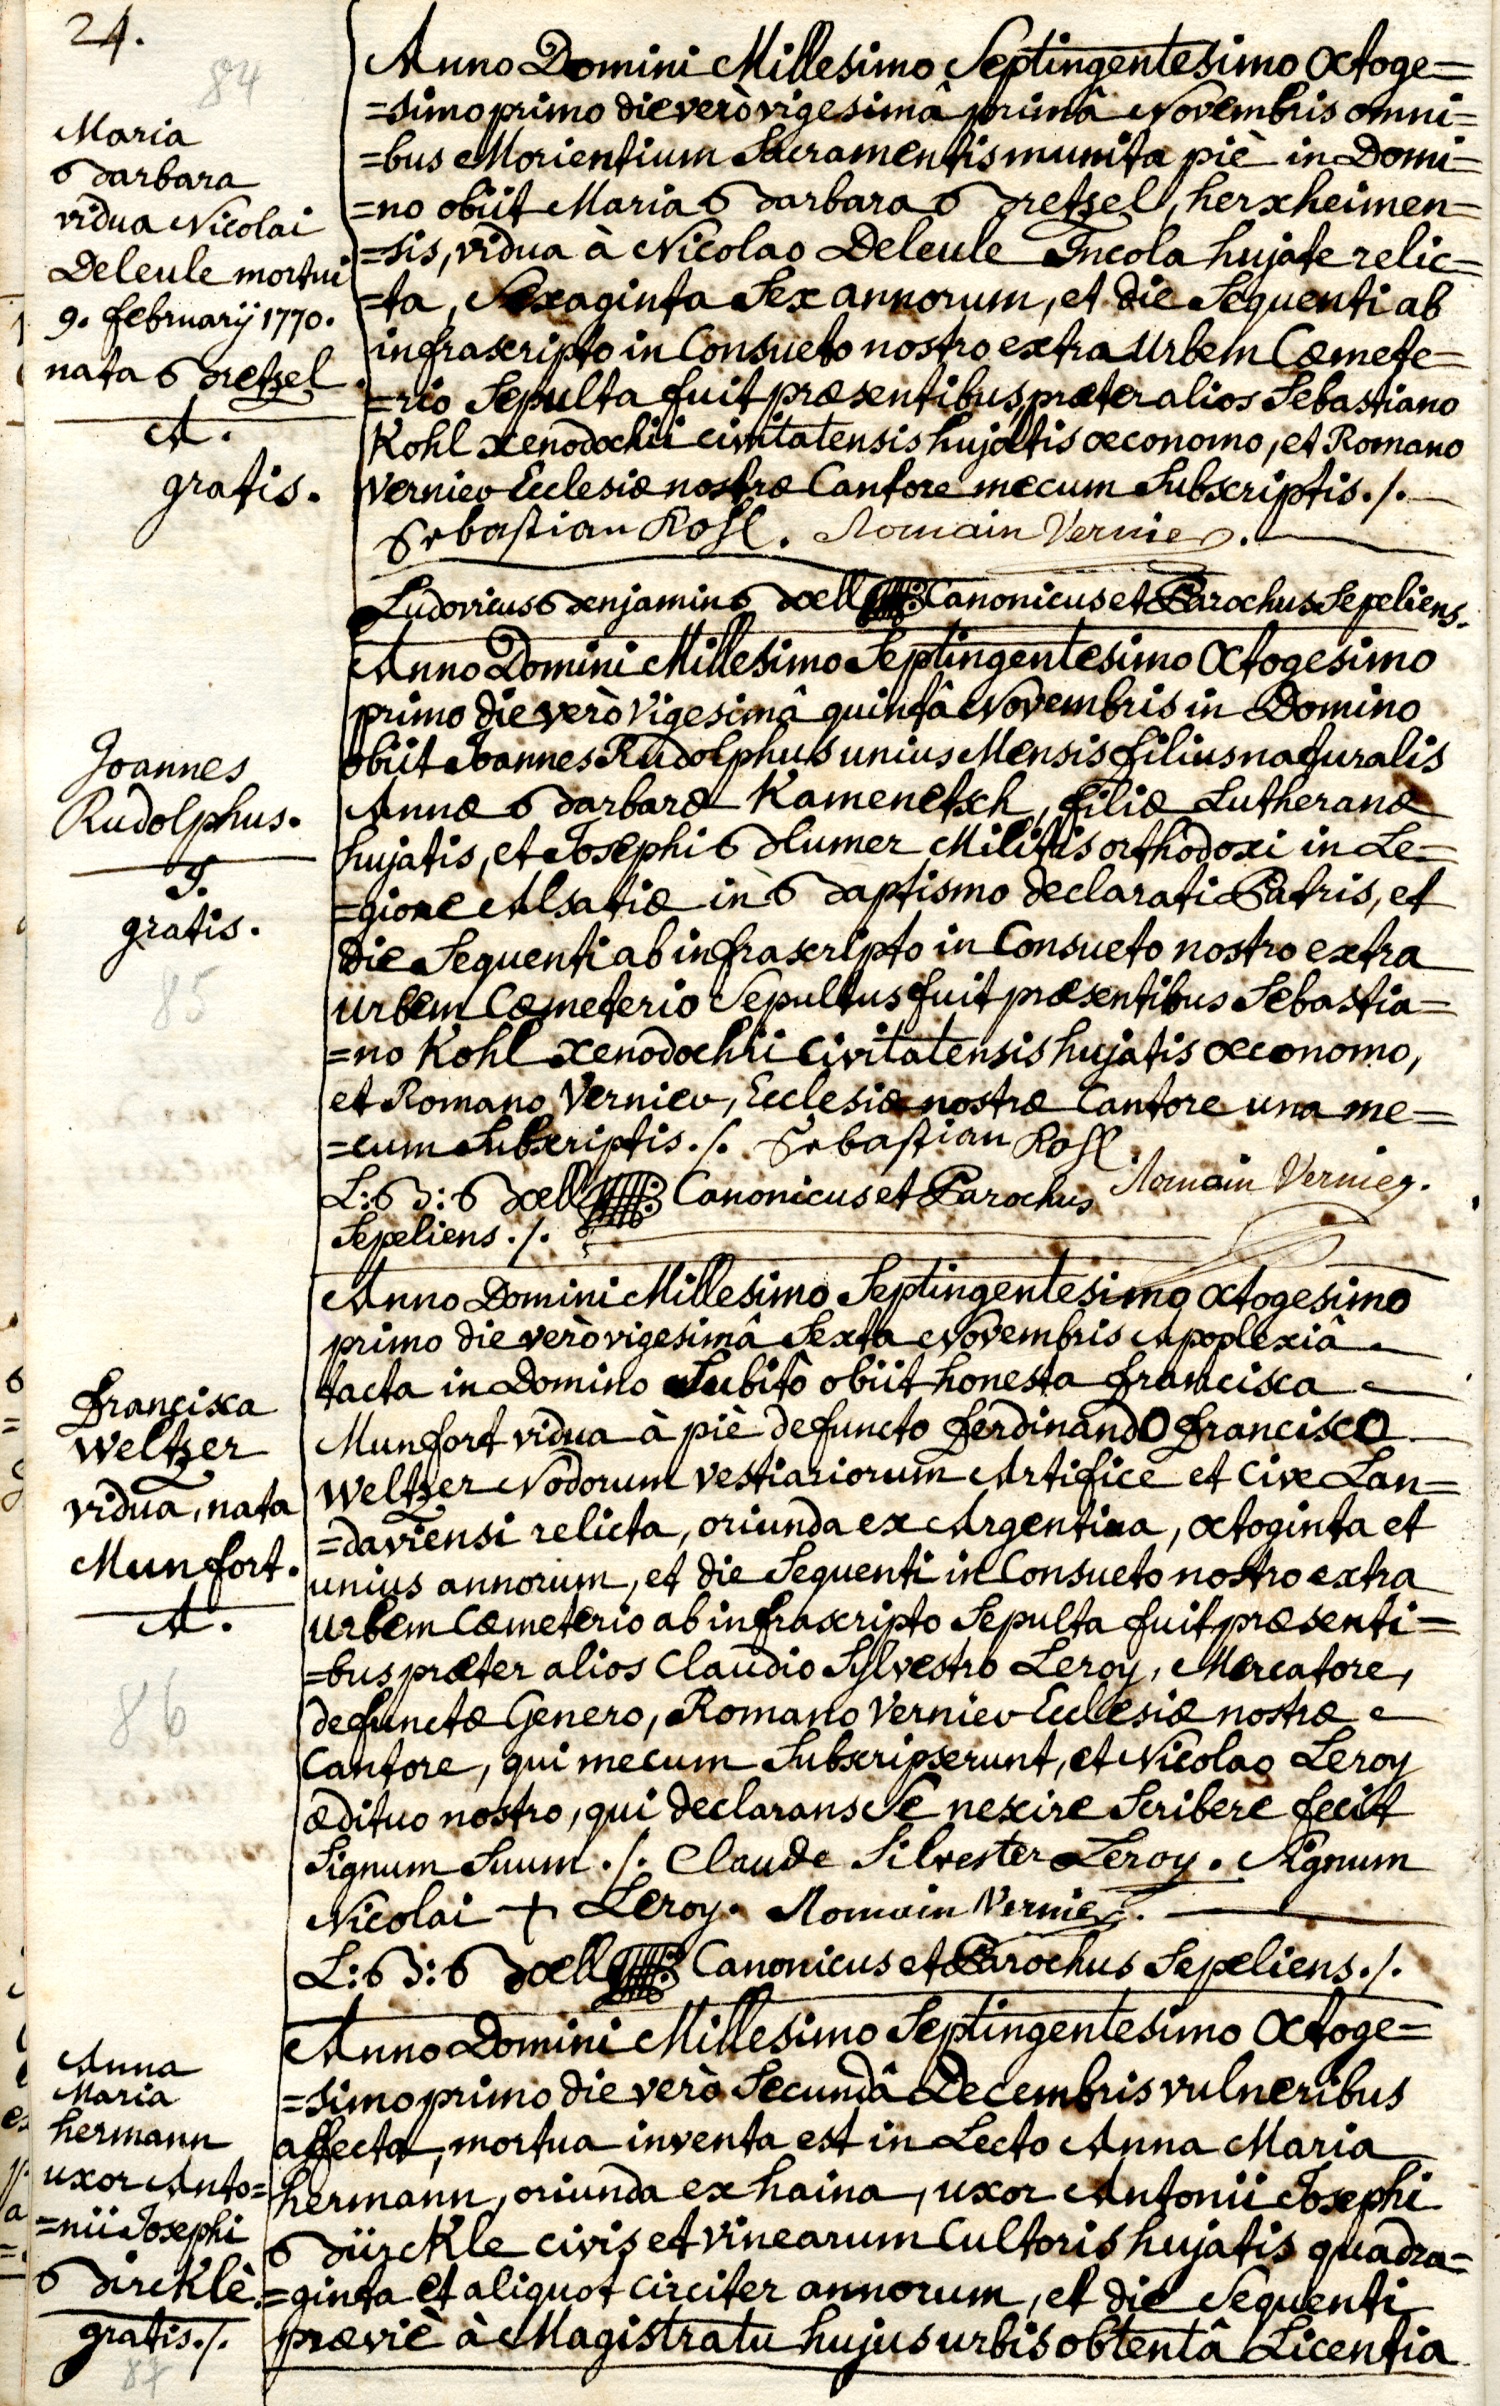 24.
84
Maria
Barbara
vidua Nicolai
Deleule mortui
9. februarij 1770.
nata Bretzel.
A.
gratis.
Anno Domini Millesimo Septingentesimo Octoge=
=simo primo die verò vigesimâ primâ Novembris omni=
=bus Morientium Sacramentis munita piè in Domi=
=no obiit Maria Barbara Bretzel, herxheimen=
=sis, vidua à Nicolao Deleule Incola hujate relic=
=ta, Sexaginta Sex annorum, et die Sequenti ab
infrascripto in Consueto nostro extra Urbem Cœmete=
=rio Sepulta fuit præsentibus præter alios Sebastiano
Kohl xenodochii civitatensis hujatis œconomo, et Romano
Vernier Ecclesiæ nostræ Cantore mecum Subscriptis ./.
Sebastian Kohl. Romain Vernier.
Ludovicus Benjamin Boell Canonicus et Parochus Sepeliens.
Joannes
Rudolphus.
I.
gratis.
85
Anno Domini Millesimo Septingentesimo Octogesimo
primo die verò Vigesimâ quintâ Novembris in Domino
obiit Joannes Rudolphus unius Mensis filius naturalis
Annæ Barbaræ Kamenetsch, filiæ Lutheranæ
hujatis, et Josephi Blumer Militis orthodoxi in Le=
=gione Alsatiæ in Baptismo declarati Patris, et
die Sequenti ab infrascripto in Consueto nostro extra
Urbem Cœmeterio Sepultus fuit præsentibus Sebastia=
=no Kohl xenodochii Civitatensis hujatis œconomo,
et Romano Vernier, Ecclesiæ nostræ Cantore una me=
=cum Subscriptis ./. Sebastian Kohl
L: B: Boell Canonicus et Parochus Romain Vernier.
Sepeliens ./.
Francisca
Weltzer
vidua, nata
Munfort.
A.
86
Anno Domini Millesimo Septingentesimo Octogesimo
primo die verò vigesimâ Sexta Novembris Apoplexiâ
tacta in Domino Subitò obiit honesta Francisca
Munfort vidua à piè defuncto Ferdinando Francisco
Weltzer Nodorum vestiariorum Artifice et Cive Lan=
=daviensi relicta, oriunda ex Argentina, octoginta et
unius annorum, et die Sequenti in Consueto nostro extra
Urbem Cœmeterio ab infrascripto Sepulta fuit præsenti=
=bus præter alios Claudio Sylvestro Leroy, Mercatore,
defunctæ Genero, Romano Vernier Ecclesiæ nostræ
Cantore, qui mecum Subscripserunt, et Nicolao Leroy
ædituo nostro, qui declarans Se nescire Scribere fecit
Signum Suum ./. Claude Silvester Leroy. Signum
Nicolai + Leroy. Romain Vernier.
L: B: Boell Canonicus et Parochus Sepeliens ./.
Anna
Maria
hermann
uxor Anto=
=nii Josephi
Bircklè.
gratis ./.
87
Anno Domini Millesimo Septingentesimo Octoge=
=simo primo die verò Secundâ Decembris vulneribus
affecta, mortua inventa est in Lecto Anna Maria
hermann, oriunda ex haina, uxor Antonii Josephi
Bürckle civis et vinearum Cultoris hujatis quadra=
=ginta et aliquot circiter annorum, et die Sequenti
præviè à Magistratu hujus urbis obtentâ Licentia